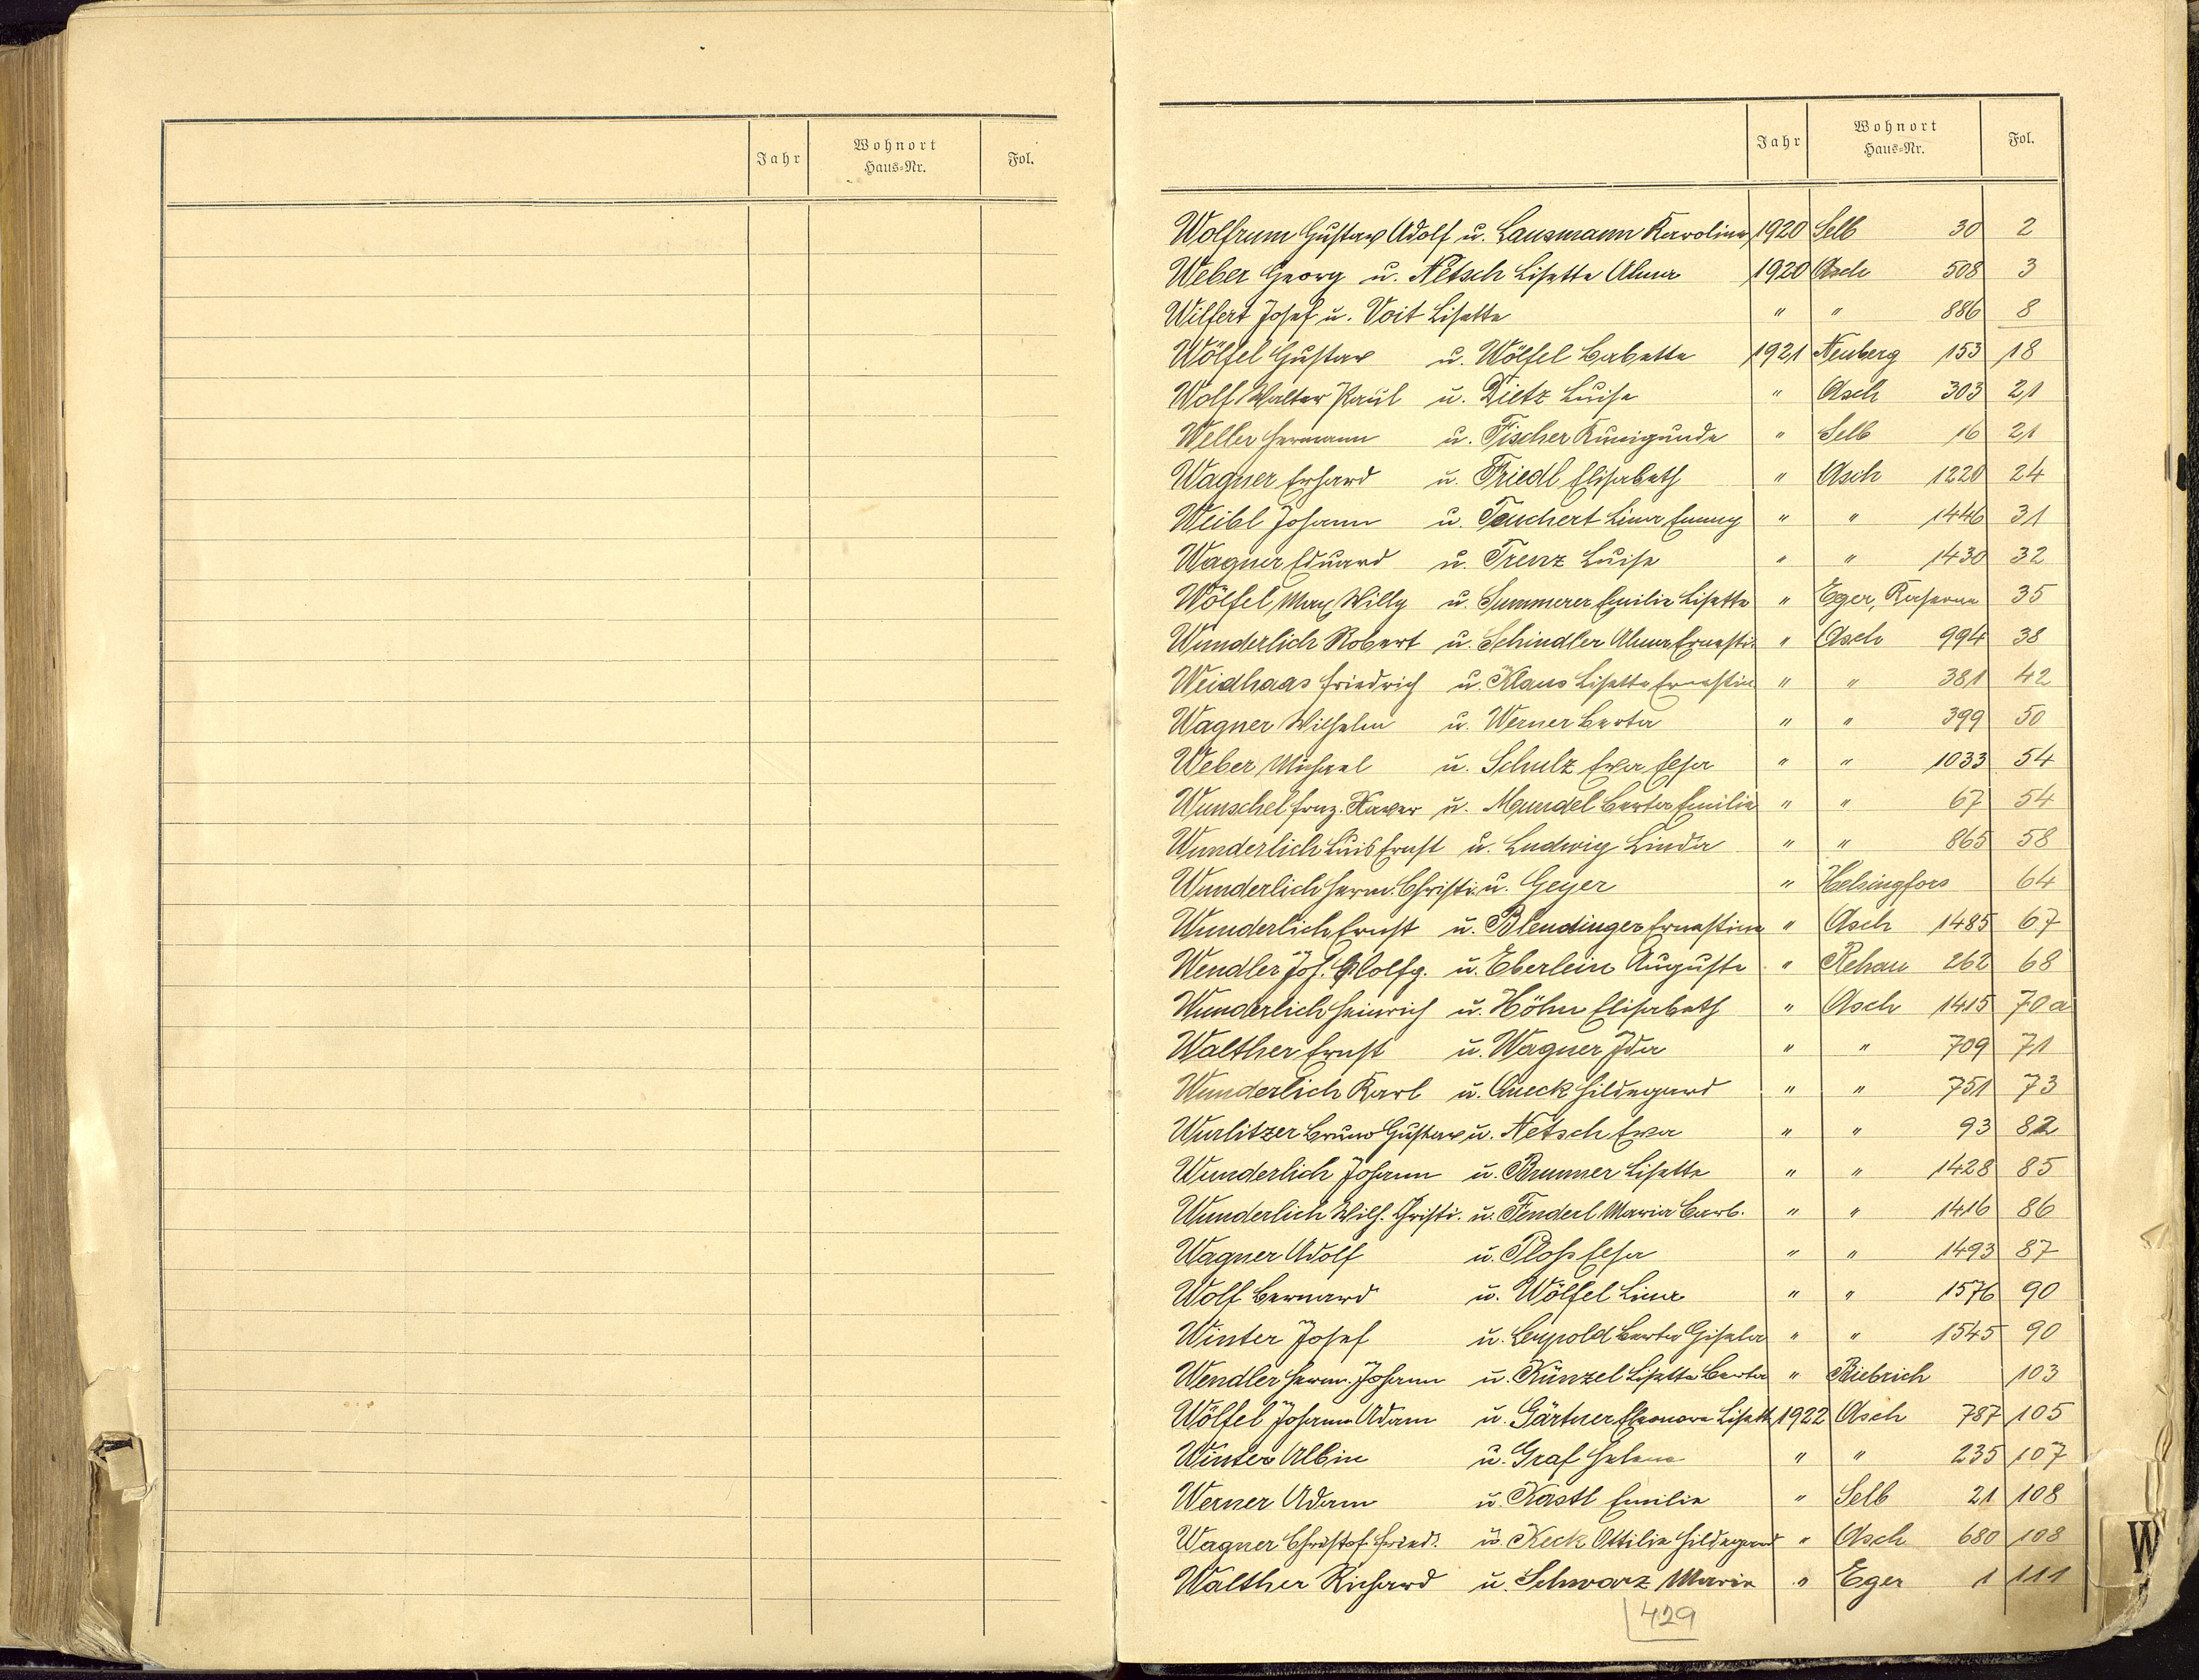 Jahr Wohnort Haus=Nr. Fol.
Jahr Wohnort Haus=Nr. Fol.
Wolfrum Gustav Adolf u. Lausmann Karolina 1920 Selb 30 2
Weber Georg u. Netsch Lisette Alma 1920 Asch 508 3
Wilfert Josef u. Voit Lisette " " 886 8
Wölfel Gustav u. Wölfel Babette 1921 Neuberg 153 18
Wolf Walter Paul u. Dietz Luise " Asch 303 21
Weller Hermann u. Fischer Kunigunde " Selb 16 21
Wagner Erhard u. Friedl Elisabeth " Asch 1220 24
Weibl Johann u. Teuchert Lina Emmy " " 1446 31
Wagner Eduard u. Trenz Luise " " 1430 32
Wölfel Max Willy u. Summerer Emilie Lisette " Eger, Kaserne 35
Wunderlich Robert u. Schindler Alma Ernesti. " Asch 994 38
Weidhaas Friedrich u. Klaus Lisette Ernestine " " 381 42
Wagner Wilhelm u. Werner Berta " " 399 50
Weber Michael u. Schulz Eva Elsa " " 1033 54
Wunschel Franz. Xaver u. Mundel Berta Emilie " " 67 54
Wunderlich Luis Ernst u. Ludwig Linda " " 865 58
Wunderlich Herm. Christi. u. Geyer " Helsingfors 64
Wunderlich Ernst u. Blendinger Ernestine " Asch 1485 67
Wendler Joh. Wolfg. u. Eberlein Auguste " Rehau 262 68
Wunderlich Heinrich u. Höhn Elisabeth " Asch 1415 70a
Walther Ernst u. Wagner Ida " " 709 71
Wunderlich Karl u. Queck Hildegard " " 751 73
Wurlitzer Bruno Gustav u. Netsch Eva " " 93 82
Wunderlich Johann u. Brunner Lisette " " 1428 85
Wunderlich Wilh. Christi. u. Fenderl Maria Barb. " " 1416 86
Wagner Adolf u. Ploß Elsa " " 1493 87
Wolf Bernard u. Wölfel Lina " " 1576 90
Winter Josef u. Leupold Berta Gisela " " 1545 90
Wendler Herm. Johann u. Künzel Lisette Berta " Biebrich 103
Wölfel Johann Adam u. Gärtner Eleonora Lisett. 1922 Asch 787 105
Winter Albin u. Graf Helene " " 235 107
Werner Adam u. Kastl Emilie " Selb 21 108
Wagner Christof Fried. u. Keck Ottilie Hildegard " Asch 680 108
Walther Richard u. Schwarz Marie " Eger 1 111
429
W